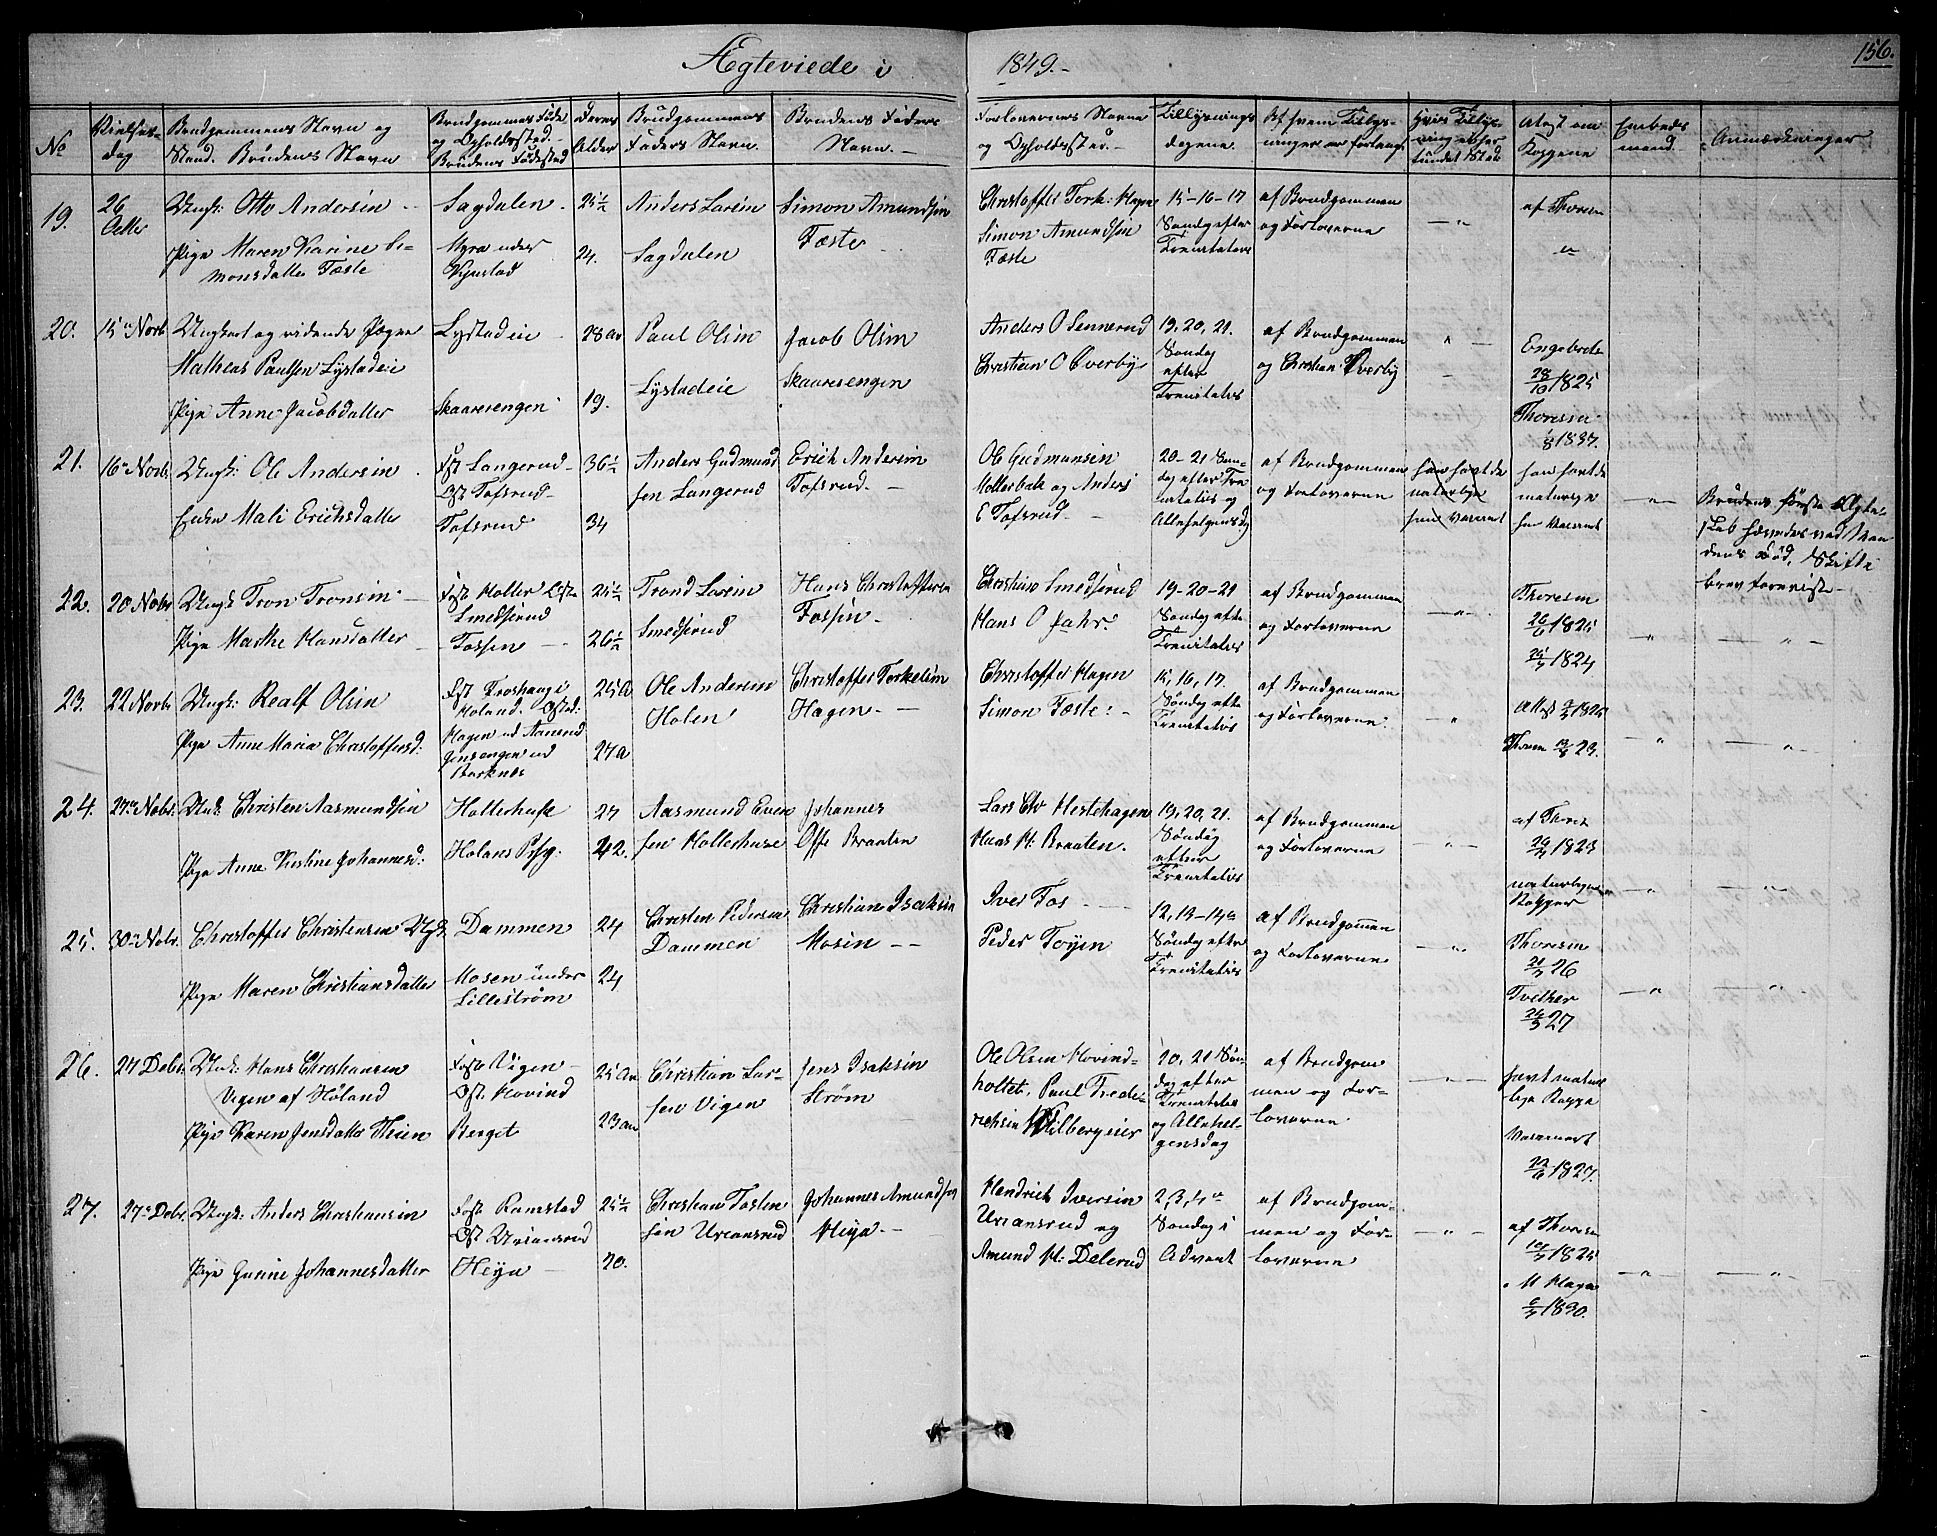 Ægteviede i 1849.-
156.
No
Vielses-
dag
Brudgommens Navn og
Stand. Brudens Navn
Brudgommens Føde
og Opholdssted.
Brudens Fødested
Deres
Alder
Brudgommens
Faders Navn.
Brudens Faders
Navn.-
Forlovernes Navne
og Opholdssted.-
Tillysnings
dagene.
Af hvem Tillys-
ninger er forlangt
Attest om
Koppene
Embeds
mand.
Anmærkninger
19.
26
Octbr
Ungk: Otto Andersen
Pige Maren Karine Si-
monsdatter Tæste
Sagdalen.
Myra under
24.
Anders Larsen
Sagdalen
Simon Amundsen
Tæste
Christoffer Tork: Hagen
Simon Amundsen
Tæste
15-16-17
Søndag efter
Trenitates
af Brudgommen
og Forloverne
af Thoresen
20.
15 Novb
Ungkarl og
Mathias Paulsen Lystadeie
Pige Anne Jacobsdatter
Lystadeie
Skaaresengen
28 Aar
19.
Paul Olsen
Lystadeie
Jacob Olsen
Skaaresengen
Anders O Sennerud
Christian O Overby
19, 20, 21.
Søndag
efter
Trenitates
af Brudgommen
og Christian Overby
Engebret
28/10 1825
Thoresen
1837.
21.
16 Novb.
Ungk: Ole Andersen
Enke Mali Erichsdatter
Fst Langerud-
Ost Tofsrud-
Tofsrud
36½
34
Anders Gudmund
sen Langerud
Erich Andersen
Tofsrud.-
Ole Gudmunsen
Mollerbak og Anders
E Tofsrud.-
20-21 Søn-
dag efter Tre
nitatis og
Allehelgensdg
af Brudgommen
og Forloverne
har havt de
naturlige
har havt de
naturlige
Brudens første Ægte-
skab hævedes ved Man
dens Død, Skifte
brev forevist-
22.
20 Nobr
Ungk Tron Tronsen-
Pige Marthe Hansdatter
Fst Moller Ost
Smedsrud
Fossen
25½
26½
Trond Larsen
Smedsrud
Hans Christoffersen
Fossen
Christian Smedsrud
Hans O Jahr.
19-20-21
Søndag efte
Trenitates
af Brudgommen
og Forloverne
Thoresen
26/6 1825
25/7 1824
23.
22 Novb
Ungk: Realf Olsen
Pige Anne Maria Christoffersd:
Fst Froshaug i
Holand. Osted:
Hagen ud
Jensengen ud
25 A
27 a
Ole Andersen
Holen
Christoffer Torkelsen
Hagen.-
Christoffer Hagen
Simon Tæste:-
15, 16, 17.
Søndag efte
Trenitates
af Brudgommen
og Forloverne.
Attest 1825
23.
24.
27 Nobr.
Ungk Christen Aasmundsen
Pige Anne Kirstine Johannesd:
Hollerhuse
Holans Prsg:
27
42.
Aasmund Even
sen Hollerhuse
Johannes
Offe Braaten
Lars Chr Hestehagen
Hans H: Braaten.
19, 20, 21.
Søndag
efter
Trenitates
af Brudgommen
og Forloverne
af Thores
1823
naturlige
Kopper
25.
30 Nobr.
Christoffer Christensen Ungk
Pige Maren Christiansdatter
Dammen
Mosen under
Lillestrøm
24
24
Christen Pedersen
Dammen
Christian Isaksen
Mosen --
Iver Fos
Peder Toyen
12, 13-14
Søndag efter
Trenitates
af Brudgommen
og Forloverne
Thoresen
21/7 26
Tvether
27
26.
27 Debr
Ungk: Hans Christiansen
Vigen af Høland
Pige Karen Jensdatter
Fst Vigen-
Ost Hovind
Berget
25 Aar
23 aar
Christian Lar-
sen Vigen
Jens Isaksen
Strøm
Ole Olsen Hovind-
holtet, Paul Frede-
richsen Hilbergeier
20, 21 Søn-
dag efter
Trenitates
og Allehel-
gensdag
af Brudgom
men og For-
loverne
havt natur
lige Koppe
1827.
27.
27 Debr.
Ungk: Anders Christiansen
Pige Gunine Johannesdatter
Fst Ramstad
Ost Urtansrud
Heya
25½
20.
Christian Tosten
sen Urtansrud
Johannes Amundsen
Heya.-
Hendrich Iversen
Urtansrud og
Amund H: Delerud
2, 3, 4
Søndag i
Advent
af Brudgom-
men og For-
loverne
af Thoresen
1825
1830.